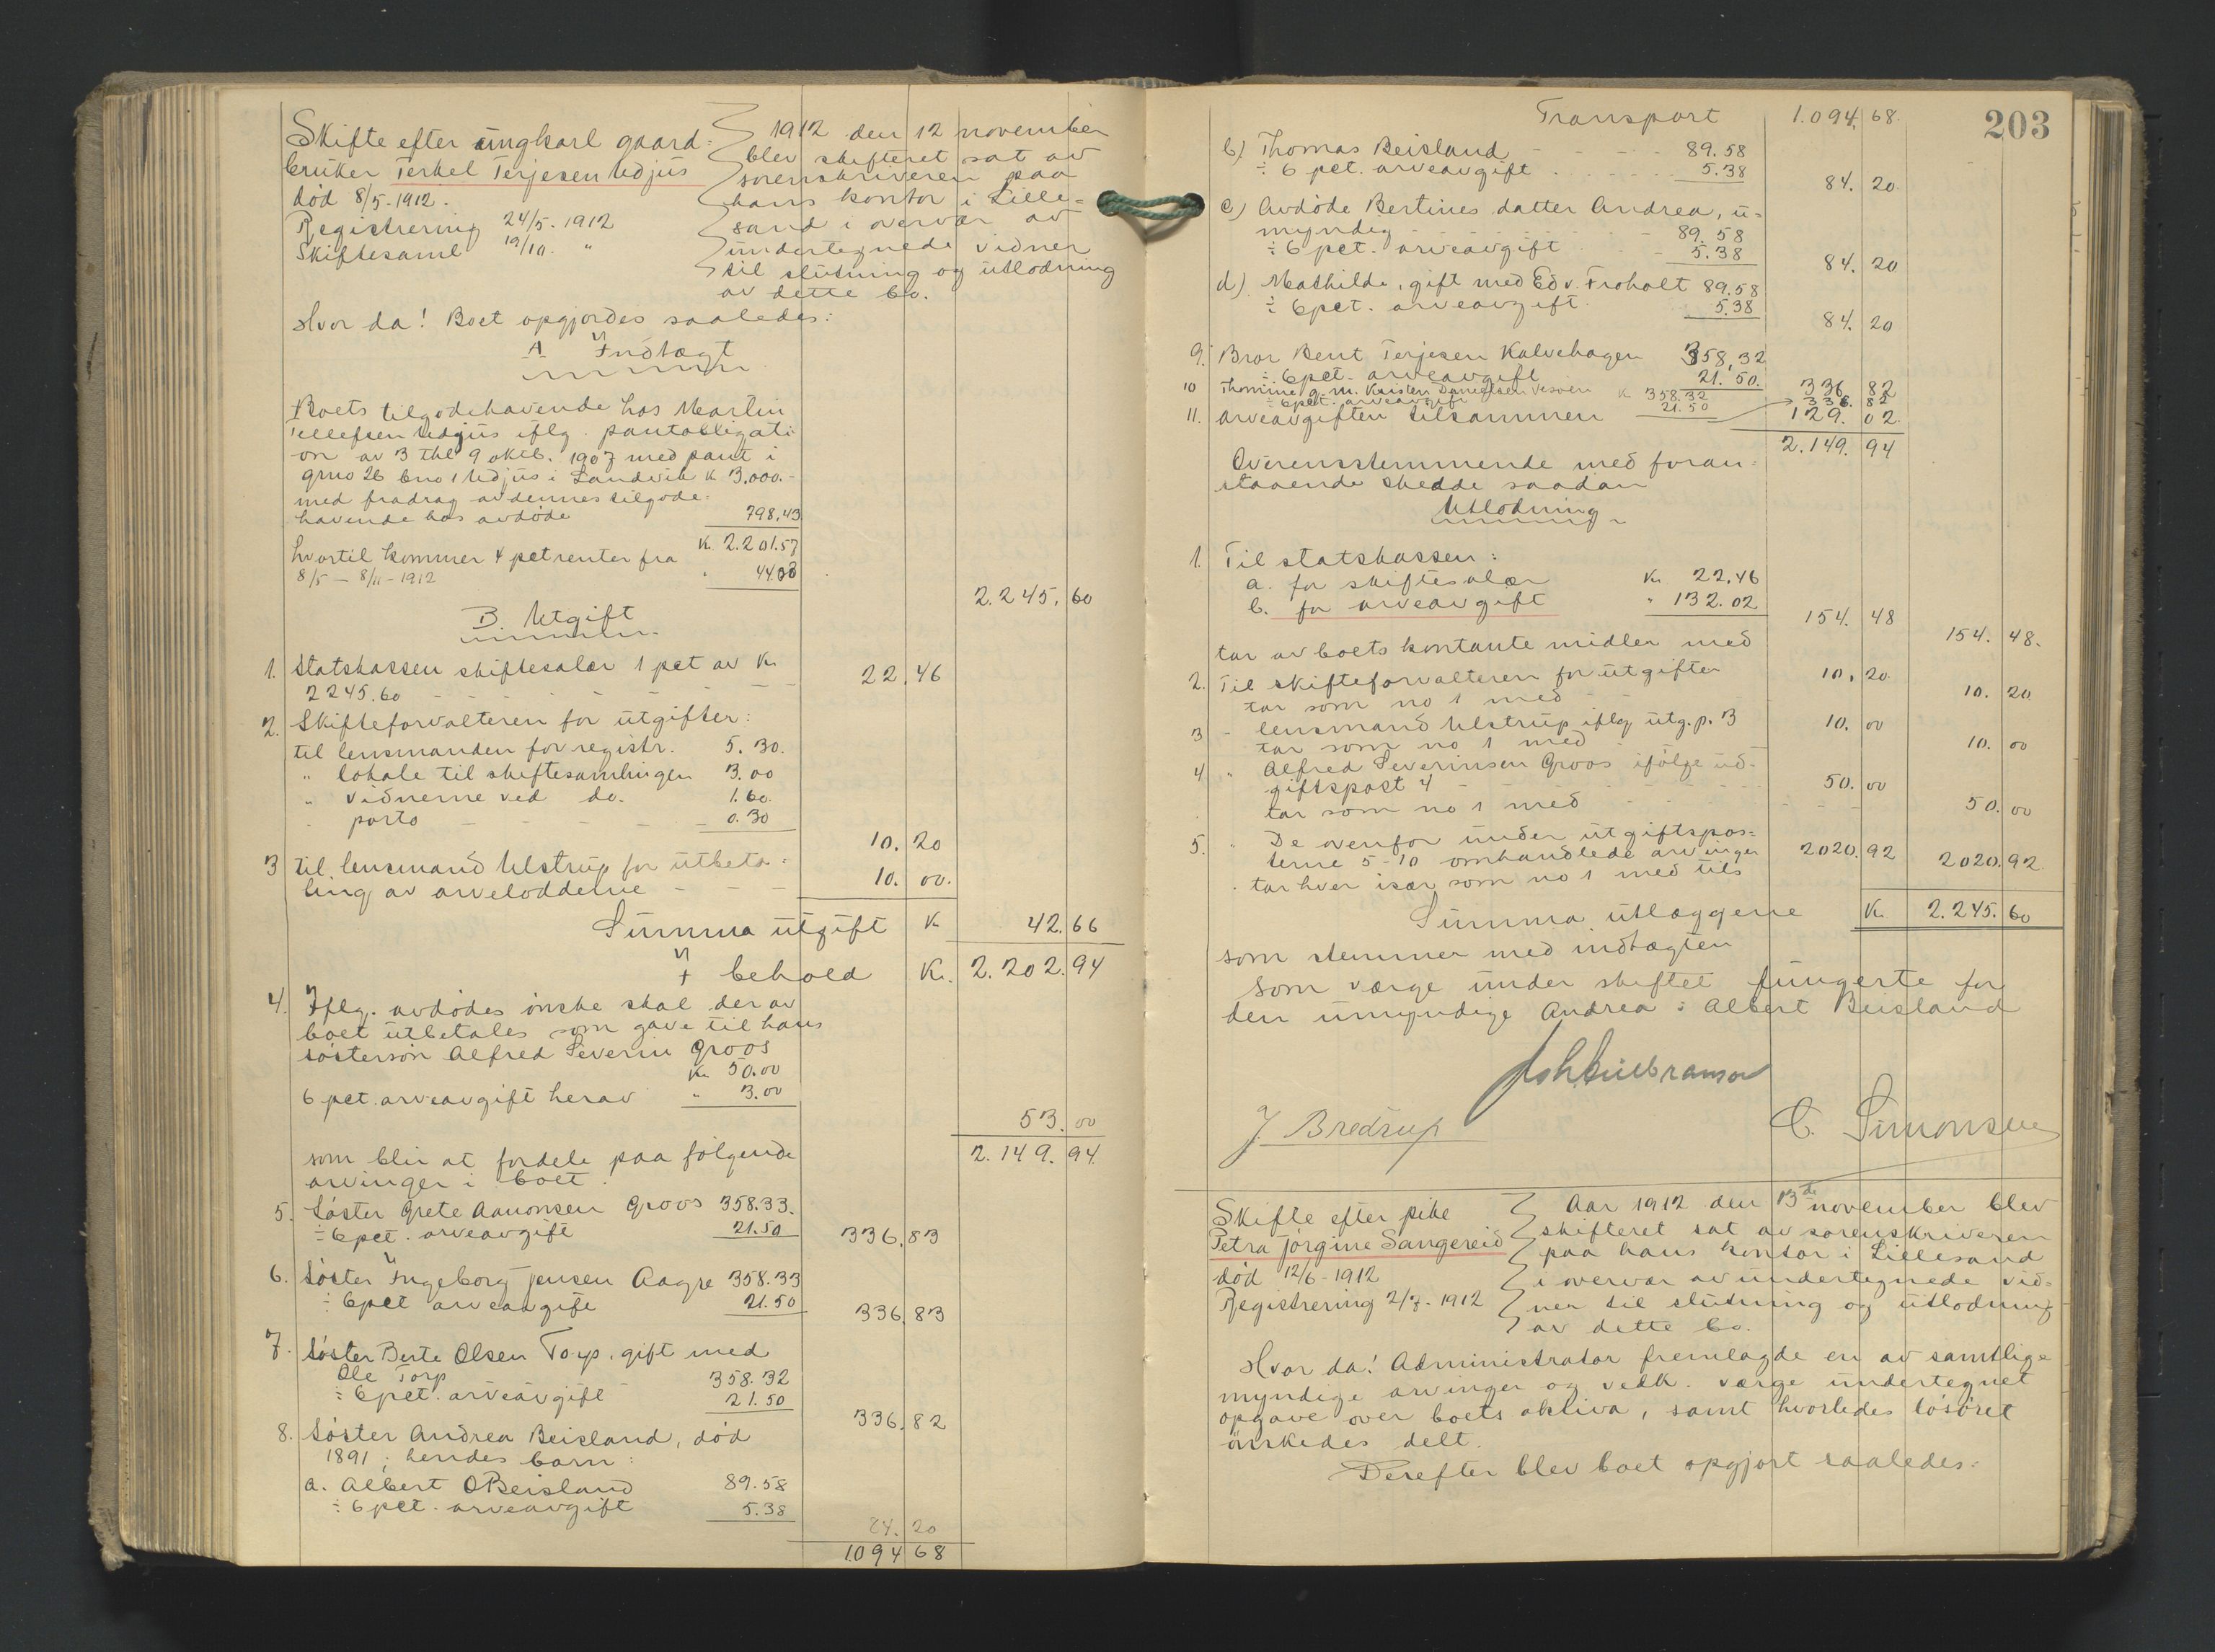 Skifte efter ungkarl gaard=
bruker Terkel Terjesen Udjus
död 8/5-1912.
Registrering 24/5-1912
Skiftesaml 19/10. "
1912 den 12 november
blev skifteret sat av
sorenskriveren paa
hans kontor i Lille=
sand i overvær av
undertegnede vidner
til slutning og utlodning
av dette bo.
Hvor da! Boet opgjordes saaledes:
A Indtægt
Boets tilgodehavende hos Martin
Tellefsen Udjus iflg. pantobligati
on av 3 thl 9 oktb. 1907 med pant i
grno 26 bno 1 Udjus i Landvik K 3.000.-
med fradrag av dennes tilgode=
havende hos avdöde 798,43
K. 2.201.57
hvortil kommer 4 pct renter fra
8/5 - 8/11 - 1912 " 44.03
2.245.60
B. Utgift
1. Statskassen skiftesalær 1 pct av Kr
2245.60 22.46
2. Skifteforvalteren for utgifter:
til lensmanden for registr. 5.30.
" lokale til skiftesamlingen 3.00
" vidnerne ved do. 1.60.
" porto 0.30
10.20
3 til lensmand Ulstrup for utbeta=
ling av arvelodderne 10.00.
Summa utgift K 42.66
I behold K. 2.202.94
4. Iflg. avdödes önske skal der av
boet utbetales som gave til hans
søstersön Alfred Severin Groos
Kr 50.00
6 pct. arveavgift herav " 3.00
53.00
2.149.94
som blir at fordele paa fölgende
arvinger i boet.
5. Söster Grete Aanonsen Groos 358.33.
÷ 6 pct. arveavgift 21.50 336.83
6. Söster Ingeborg Jensen Aagre 358.33
÷ 6 pct arveavgift 21.50 336.83
7. Söster Berte Olsen Torp, gift med
Ole Torp 358.32
÷ 6 pct. arveavgift 21.50
336.82
8. Söster Andrea Beisland, död
1891; hendes barn:
a. Albert O Beisland 89.58
÷ 6 pct. arveavgift 5.38
84.20
1094 68
203
Transport 1.094.68.
b) Thomas Beisland 89.58
÷ 6 pct. arveavgift 5.38 84.20
c) Avdöde Bertines datter Andrea, u=
myndig 89.58
÷ 6 pct. arveavgift 5.38 84.20
d) Mathilde, gift med Edv. Froholt 89.58
÷ 6 pct. arveavgift 5.38
84.20
9. Bror Bent Terjesen Kalvehagen 358,32
÷ 6 pct. arveavgift 21.50. 336.82
10 Thomine g.m. Kristen Danielsen K 358.32
÷ 6 pct. arveavgift 21.50 336.82
11. arveavgiften tilsammen 129.02.
2.149.94
Overensstemmende med foran=
staaende skedde saadan
Utlodning
1. Til statskassen:
a. for skiftesalær Kr 22.46
b. for arveavgift " 132.02
154.48
tar av boets kontante midler med 154.48.
2. Til skifteforvalteren for utgifter 10.20
tar som no 1 med 10.20
3 - lensmand Ulstrup iflg utg.p. 3 10.00
tar som no 1 med 10.00
4 " Alfred Severinsen Groos ifölge ud-
giftspost 4 50.00
tar som no 1 med 50.00
5. " De ovenfor under utgiftspos=
terne 5-10 omhandlede arvinger 2020.92
tar hver især som no 1 med tils 2020.92.
Summa utlæggene K. 2.245.60
som stemmer med indtægten
Som værge under skiftet fungerte for
den umyndige Andrea: Albert Beisland
J. Bredrup
C. Simonsen
Skifte efter pike
Petra Jörgine Sangereid
död 12/6-1912
Registrering 2/7-1912
Aar 1912 den 13de november blev
skifteret sat av sorenskriveren
paa hans kontor i Lillesand
i overvær av undertegnede vid=
ner til slutning og utlodning
av dette bo.
Hvor da! Administrator fremlagde en av samtlige
myndige arvinger og vedk. værge undertegnet
opgave over boets aktiva, samt hvorledes lösöret
önskedes delt.
Derefter blev boet opgjort saaledes: